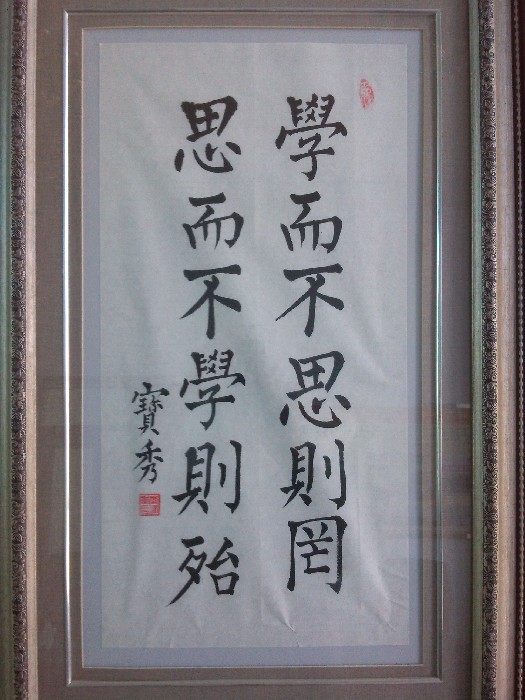 學而不思則罔
思而不學則殆
寶秀